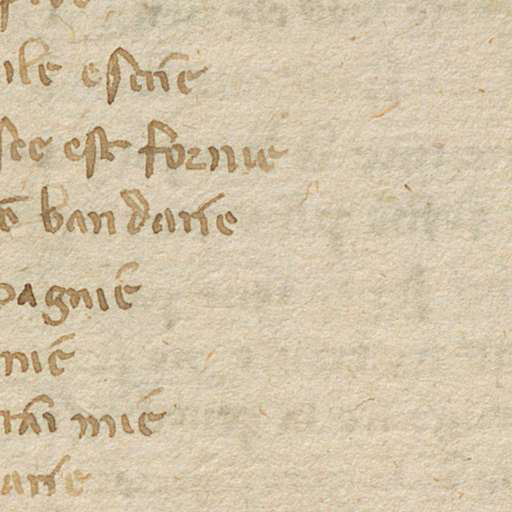 ile escrie
see est fornie
bandarie
pagnie
nie
rai mie
arie